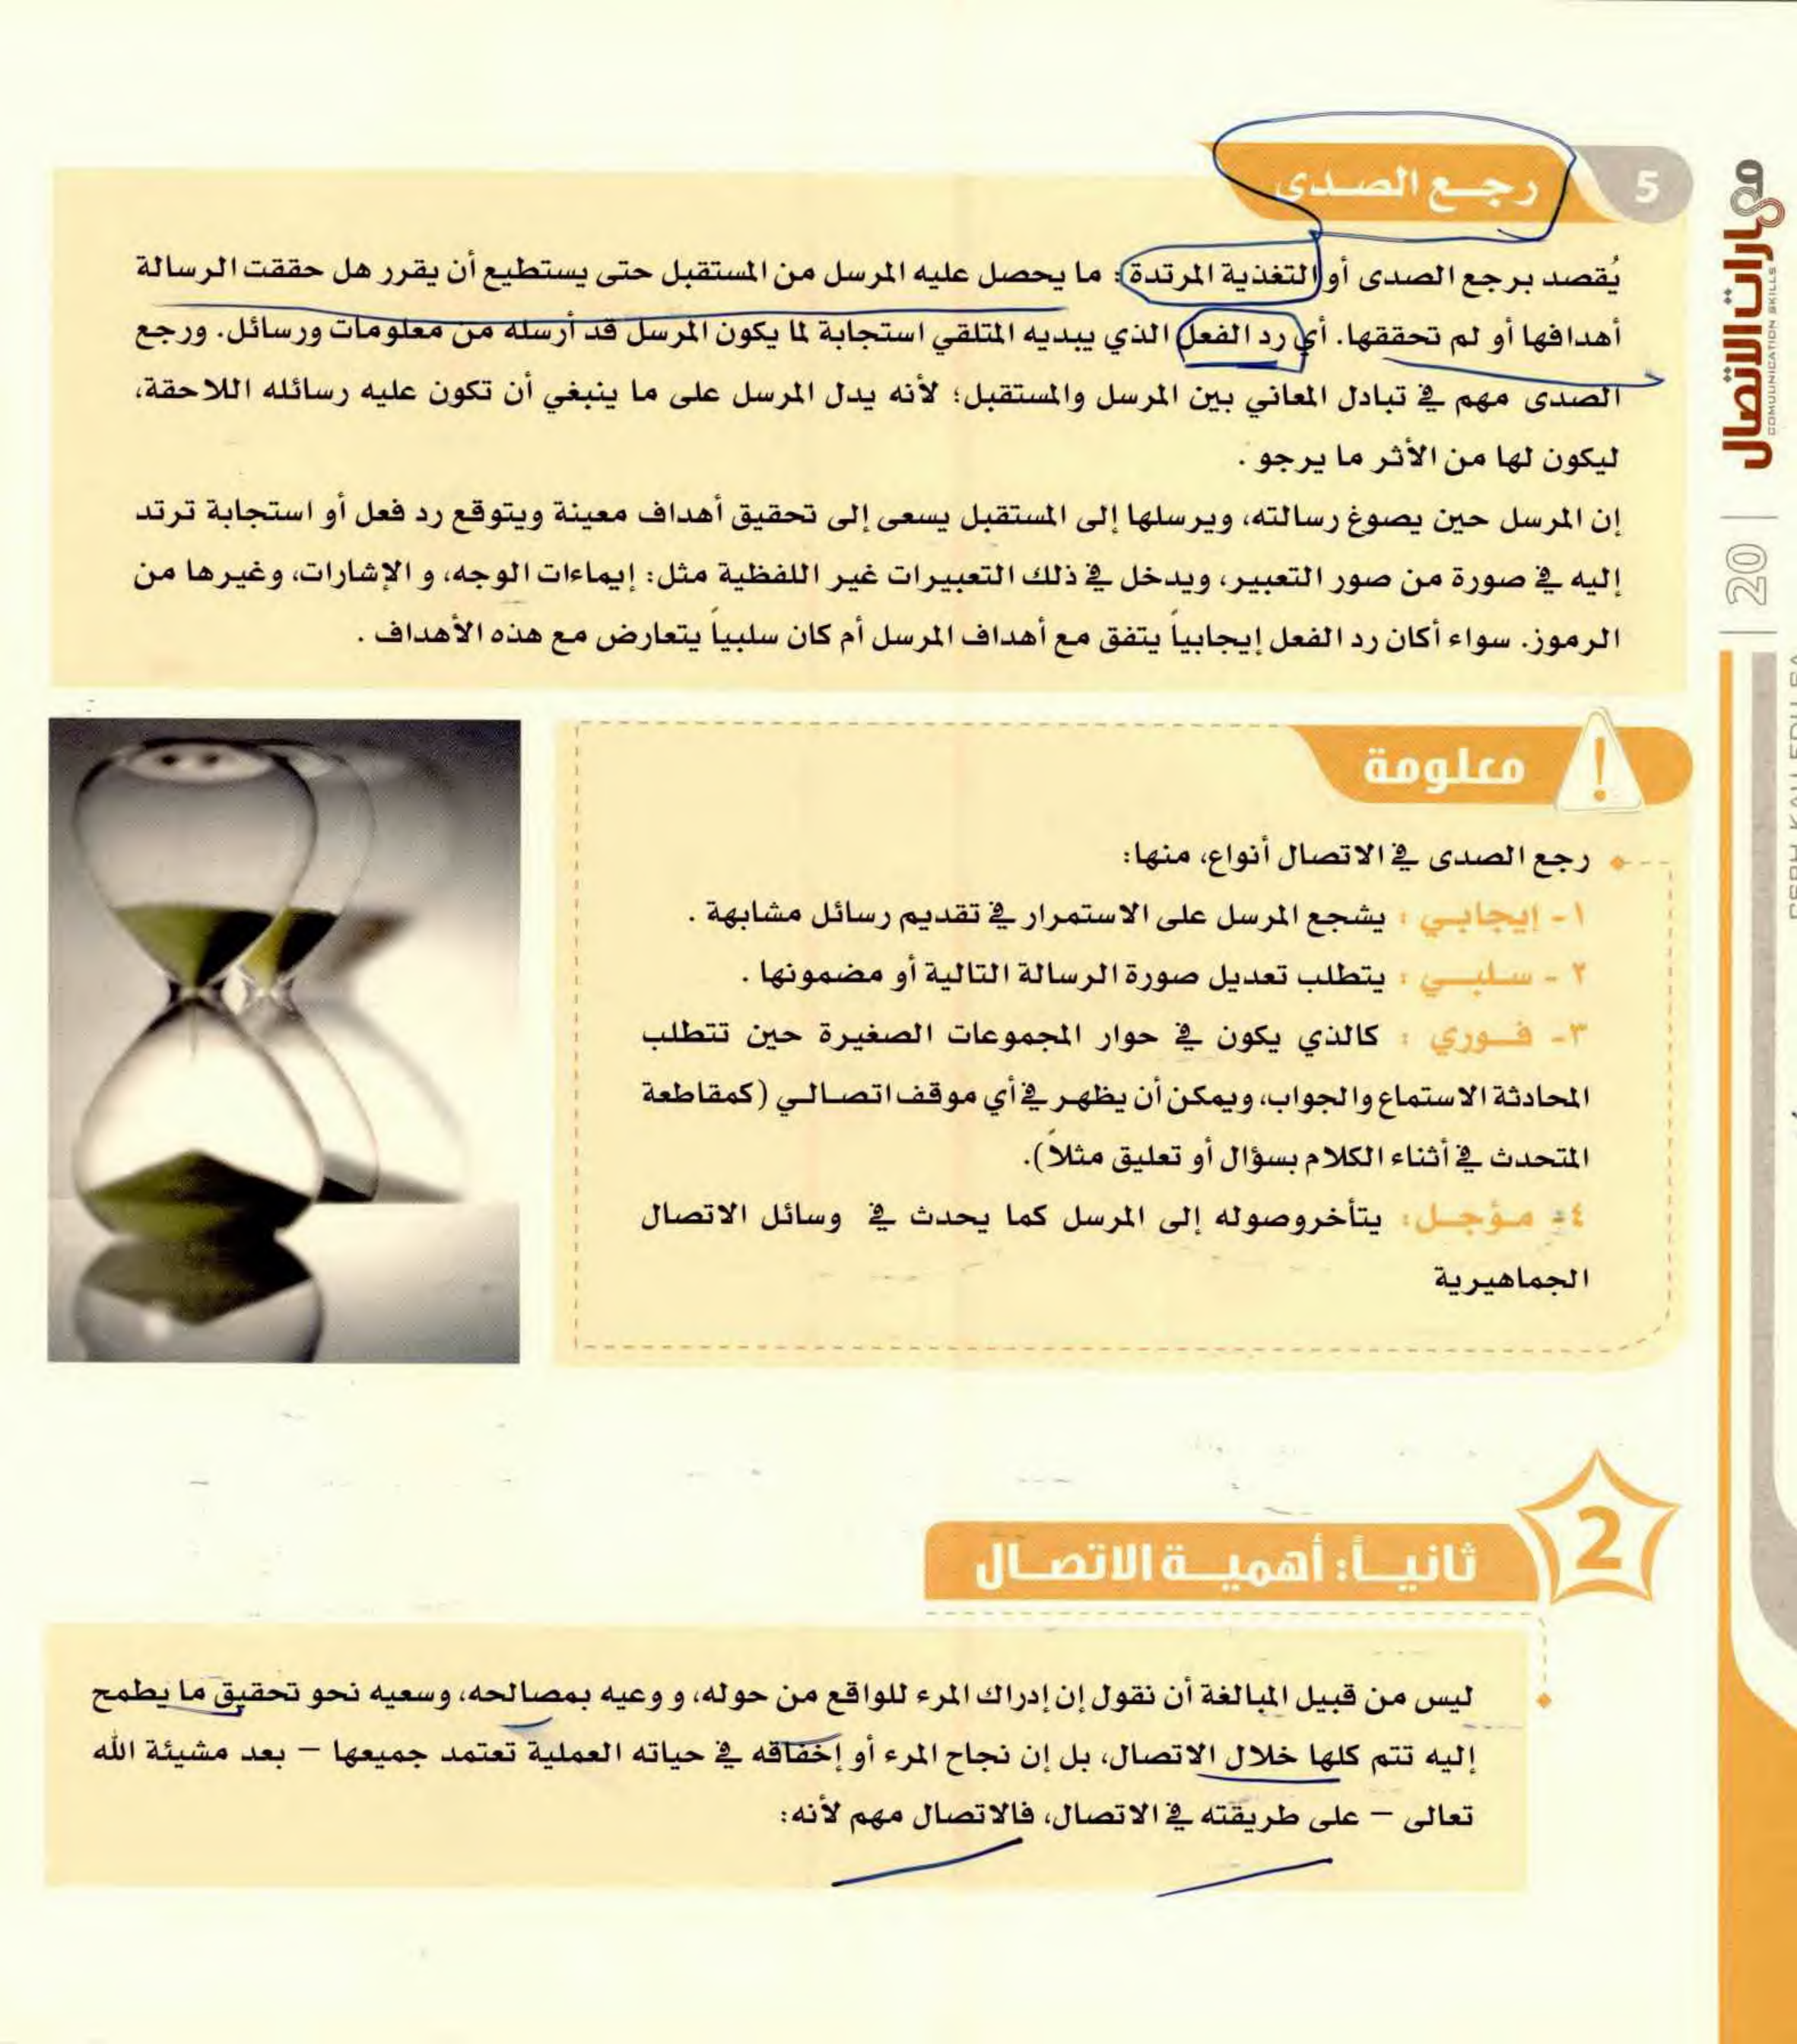 5
رجع الصدى
يُقصد برجع الصدى أو التغذية المرتدة: ما يحصل عليه المرسل من المستقبل حتى يستطيع أن يقرر هل حققت الرسالة
أهدافها أو لم تحققها. أي رد الفعل الذي يبديه المتلقي استجابة لما يكون المرسل قد أرسله من معلومات ورسائل. ورجع
الصدى مهم في تبادل المعاني بين المرسل والمستقبل؛ لأنه يدل المرسل على ما ينبغي أن تكون عليه رسائله اللاحقة،
ليكون لها من الأثر ما يرجو .
إن المرسل حين يصوغ رسالته، ويرسلها إلى المستقبل يسعى إلى تحقيق أهداف معينة ويتوقع رد فعل أو استجابة ترتد
إليه في صورة من صور التعبير، ويدخل في ذلك التعبيرات غير اللفظية مثل: إيماءات الوجه، و الإشارات، وغيرها من
الرموز. سواء أكان رد الفعل إيجابياً يتفق مع أهداف المرسل أم كان سلبياً يتعارض مع هذه الأهداف .
!
معلومة
رجع الصدى في الاتصال أنواع، منها:
١- إيجابي : يشجع المرسل على الاستمرار في تقديم رسائل مشابهة .
٢ - سلبي : يتطلب تعديل صورة الرسالة التالية أو مضمونها .
٣- فوري : كالذي يكون في حوار المجموعات الصغيرة حين تتطلب
المحادثة الاستماع والجواب، ويمكن أن يظهر في أي موقف اتصالي (كمقاطعة
المتحدث في أثناء الكلام بسؤال أو تعليق مثلاً).
٤- مؤجل: يتأخر وصوله إلى المرسل كما يحدث في وسائل الاتصال
الجماهيرية
2
ثانياً: أهمية الاتصال
ليس من قبيل المبالغة أن نقول إن إدراك المرء للواقع من حوله، و وعيه بمصالحه، وسعيه نحو تحقيق ما يطمح
إليه تتم كلها خلال الاتصال، بل إن نجاح المرء أو إخفاقه في حياته العملية تعتمد جميعها – بعد مشيئة الله
تعالى – على طريقته في الاتصال، فالاتصال مهم لأنه:
مهارات الاتصال
COMUUNICATION SKILLS
20